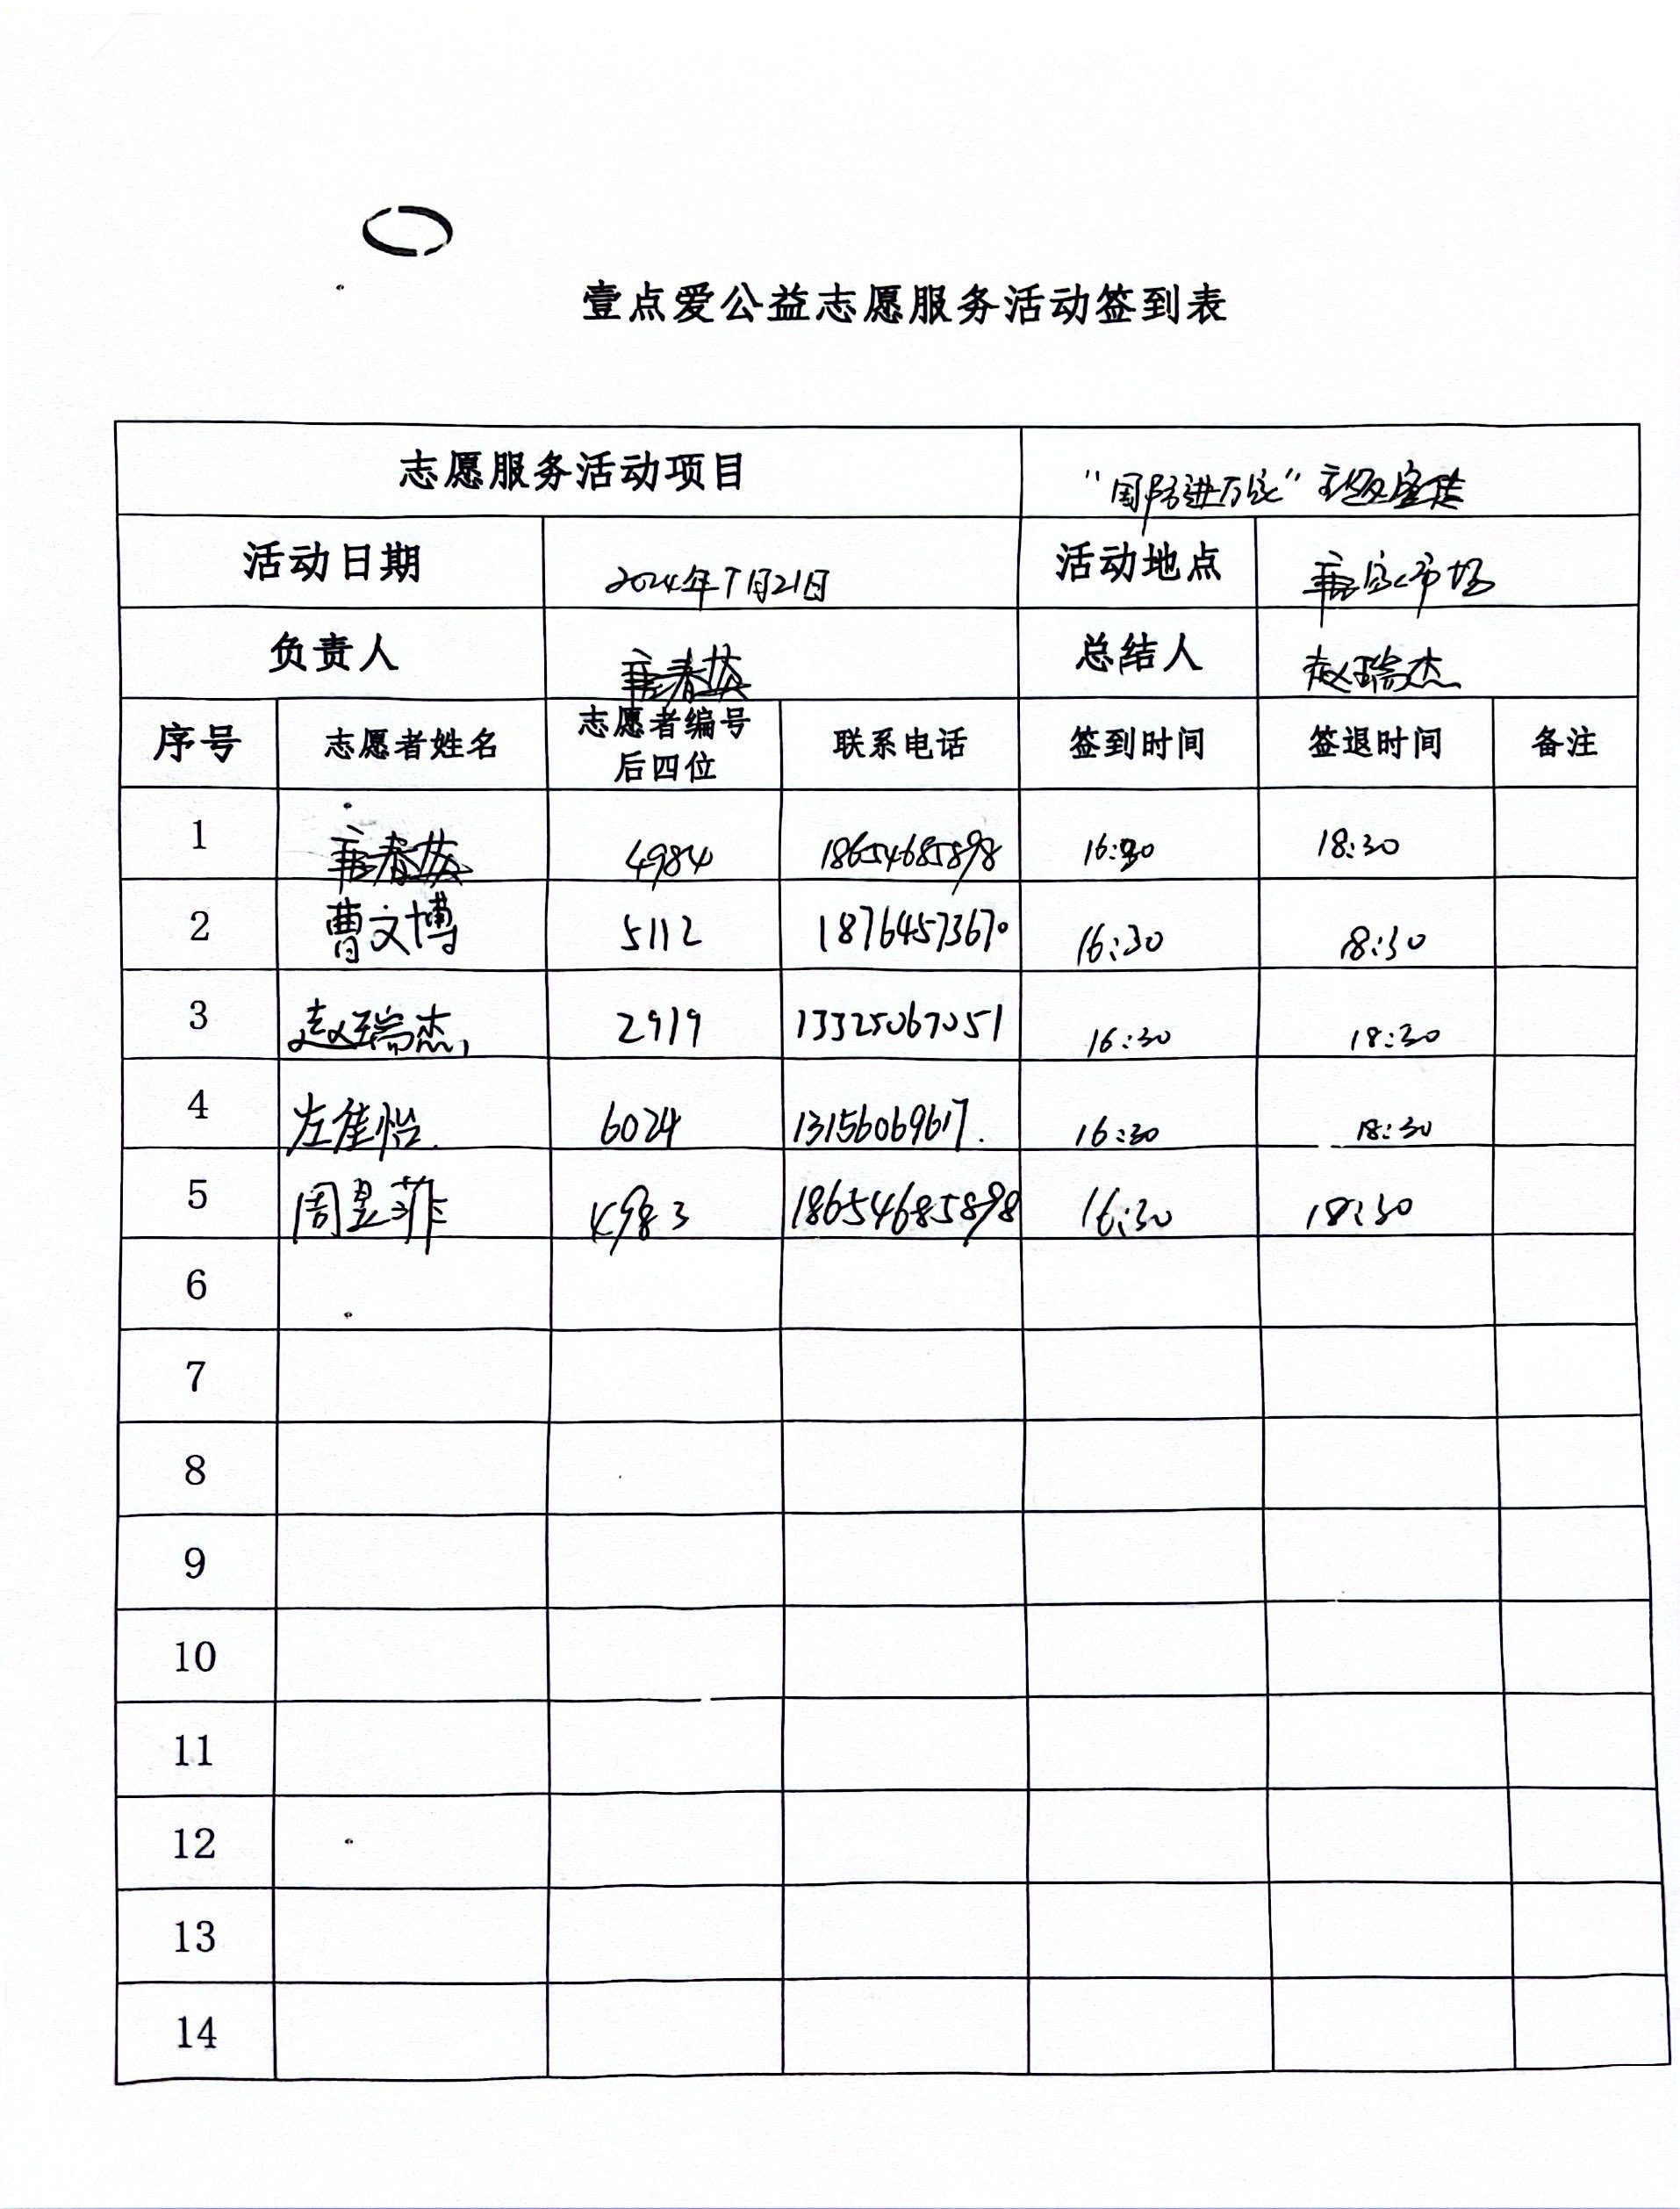 壹点爱公益志愿服务活动签到表
志愿服务活动项目 "国防进万家"主题宣传
活动日期 2024年7月21日 活动地点 市场
负责人 唐春英 总结人 赵瑞杰
序号 志愿者姓名 志愿者编号后四位 联系电话 签到时间 签退时间 备注
1 唐春英 4984 18654685898 16:30 18:30
2 曹文博 5112 18764573670 16:30 18:30
3 赵瑞杰 2919 13325067051 16:30 18:30
4 左佳怡 6024 13156069617. 16:30 18:30
5 周昱菲 4983 18654685898 16:30 18:30
6
7
8
9
10
11
12
13
14